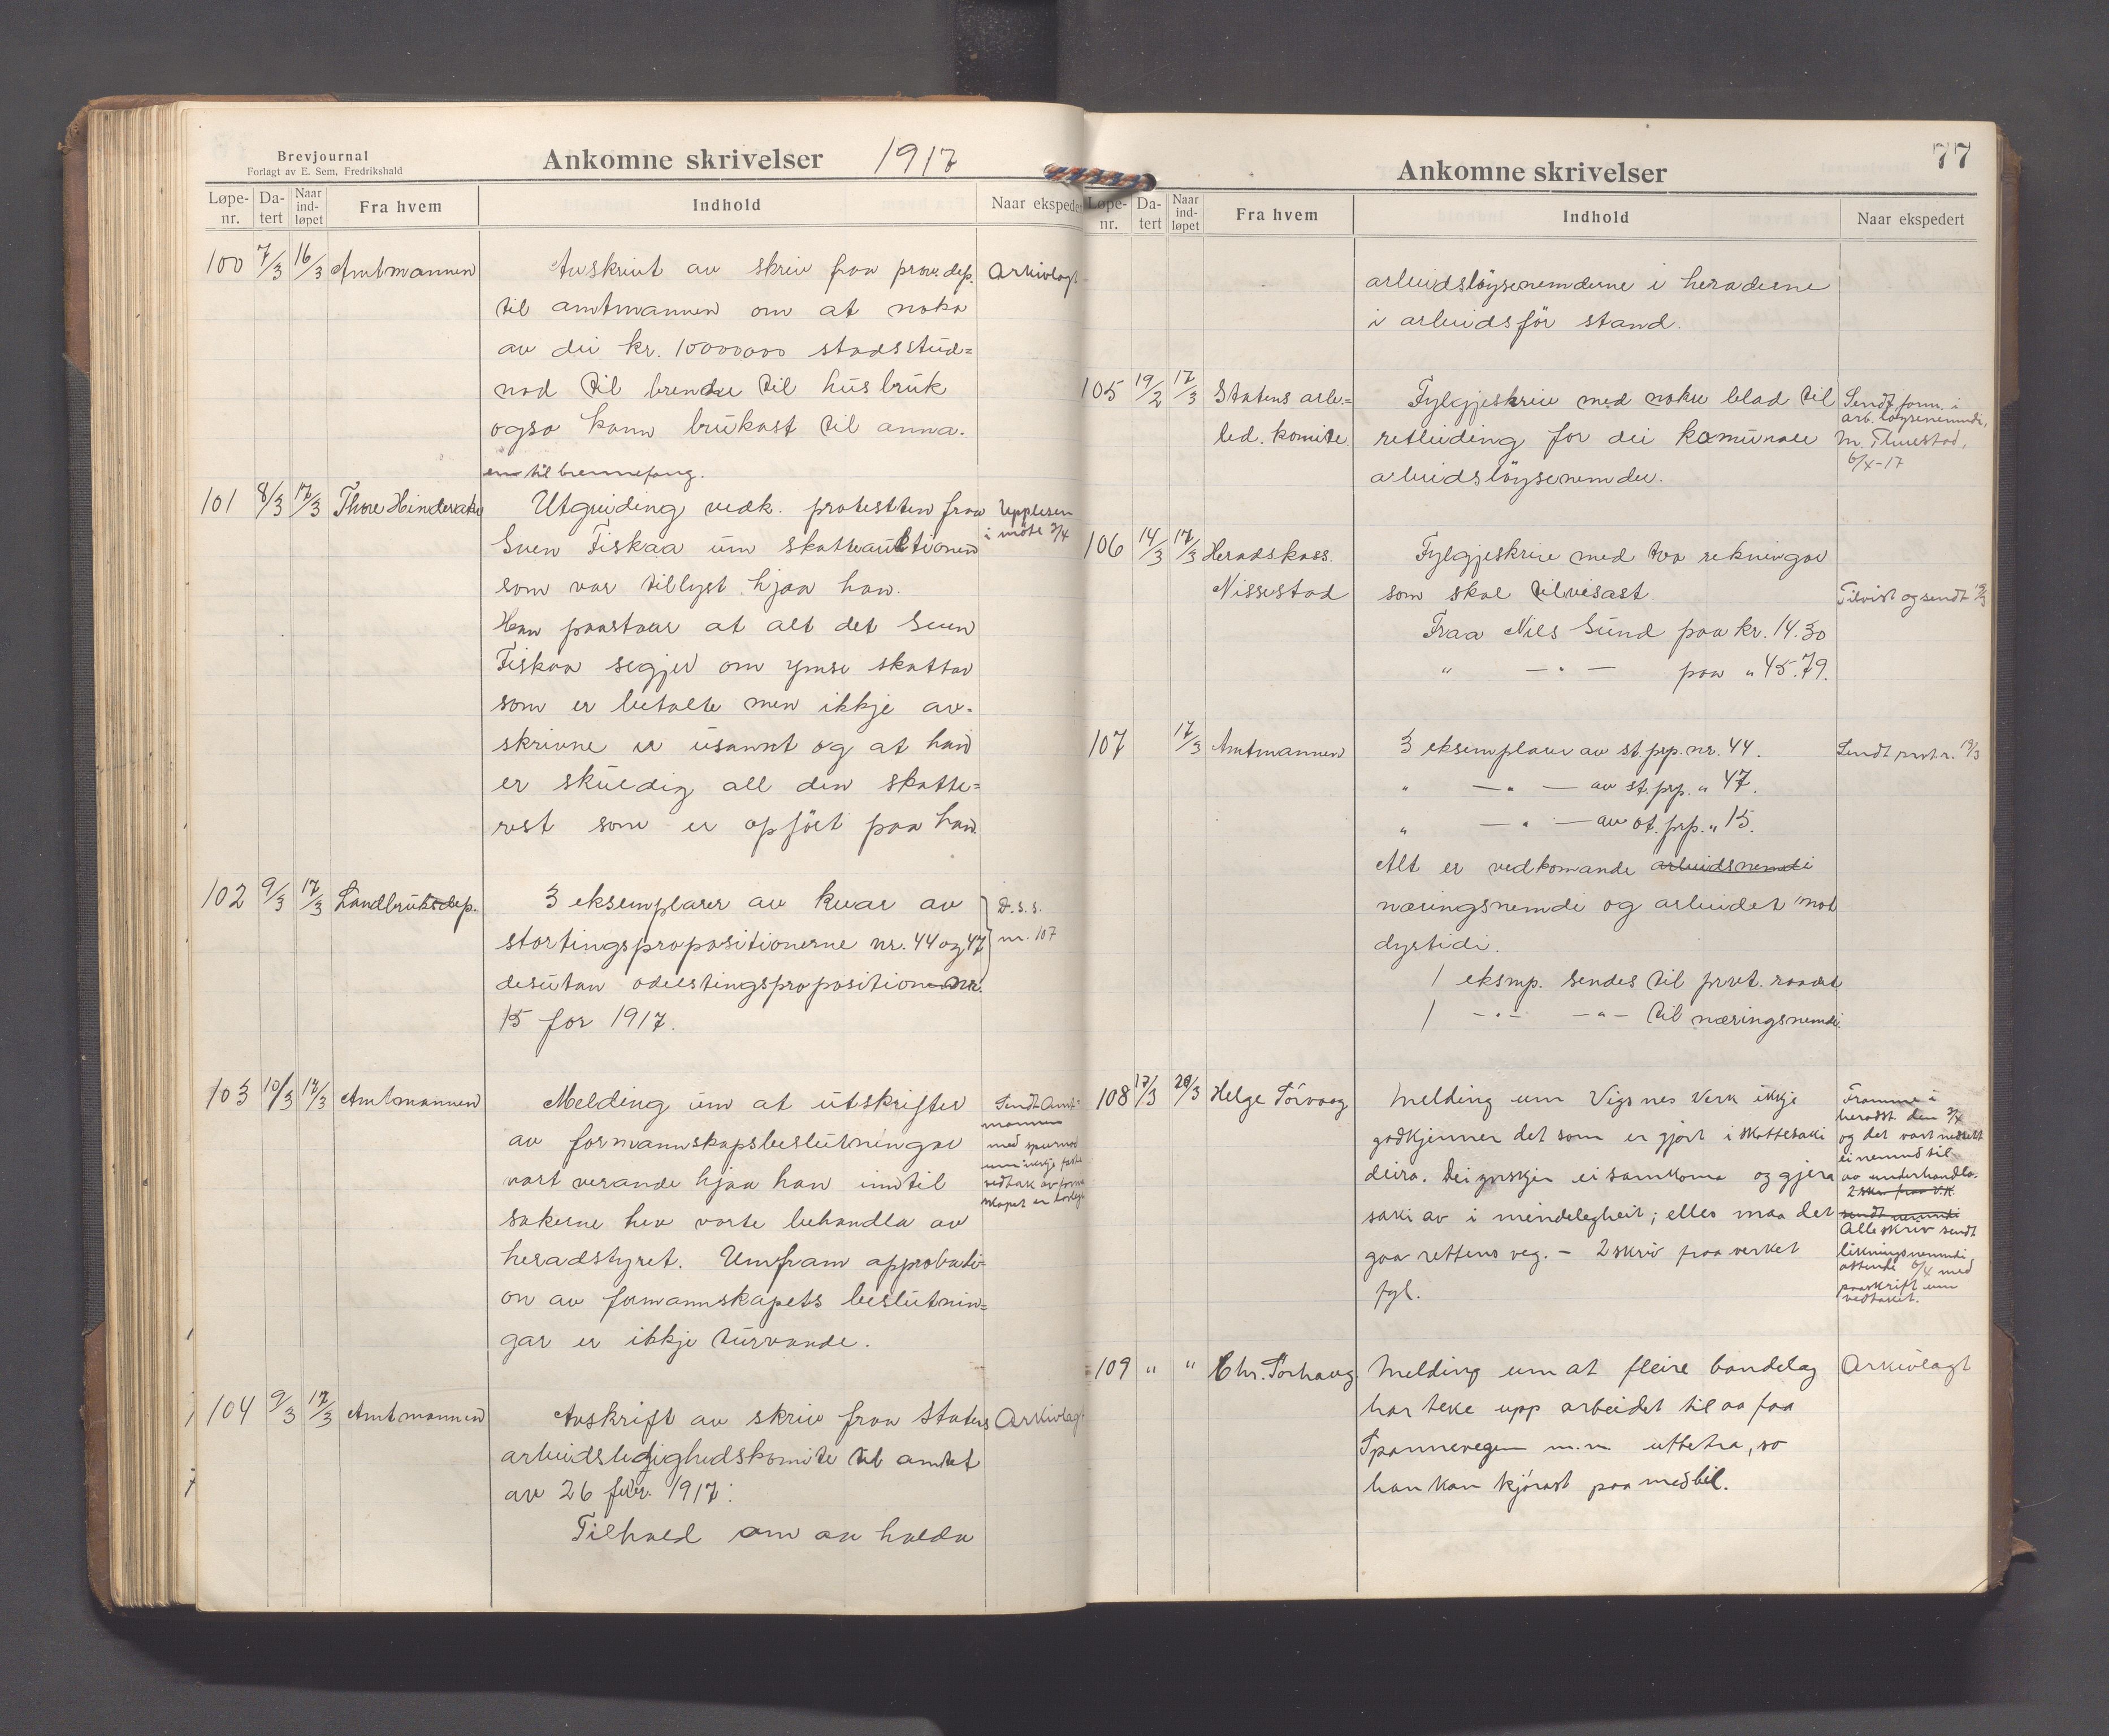 Brevjournal
Forlagt av E. Sem, Fredrikshald
Ankomne skrivelser 1917
Løpe-nr. Da-tert Naar ind-løpet Fra hvem Indhold Naar ekspede
100 7/3 16/3 Amtmannen Avskrivt av skriv fraa prov. dep. Arkivlagt
til amtmannen om at noko
av dei kr. 10000000 stadsstud=
nad til brende til husbruk
ogso kann brukast til anna.
enn til brennefang.
101 8/3 17/3 Thore Hinderaker Utgreiding vedk. protesten fraa Upplesen
Sven Fiskaa um skatteauktionen i möte 3/4
som var tillyst hjaa han.
Han paastaar at alt det Sven
Fiskaa segjer om ymse skattar
som er betalte men ikkje av-
skrivne er usannt og at han
er skuldig all den skatte=
rest som er opfört paa han.
102 9/3 17/3 Landbruksdep. 3 eksemplarer av kvar av D.s.s.
stortingspropositionerne nr. 44 og 47 nr. 107
desutan odelstingsproposition nr.
15 for 1917.
103 10/3 17/3 Amtmannen Melding um at utskrifter Sendt Amt-
mannen
av formannskapsbeslutningar med spursmaal
um ikkje faste
vart verande hjaa han inntil vedtak av formann
skapet er lovlege
sakerne hev vorte behandla av
heradstyret. Umfram approbati-
on av formannskapets beslutnin=
gar er ikkje turvande.
104 9/3 17/3 Amtmannen Avskrift av skriv fraa Statens Arkivlagt
arbeidsledighedskomite til amtet
av 26 febr. 1917:
Tilhald om aa halda
Ankomne skrivelser 77
Løpe-nr. Da-tert Naar ind-løpet Fra hvem Indhold Naar ekspedert
arbeidslöysenemderne i heraderne
i arbeidsför stand.
105 19/2 17/3 Statens arb.= Fylgjeskriv med nokre blad til Sendt form. i
arb. löysenemndi,
led. komite. retleiding for dei komunale M. Thuestad,
6/X-17
arbeidslöysenemder.
106 14/3 17/3 Heradskass. Fylgjeskriv med tvo rekningar
Nissestad som skal tilvisast. Tilvist og sendt 19/3
Fraa Nils Sund paa kr. 14.30
" — " — paa " 45.79.
107 17/3 Amtmannen 3 eksemplarer av st. prp. nr. 44. Sendt prvt. r. 19/3
" — " — av st. prp. " 47.
" — " — av ot. prp. " 15.
Alt er vedkomande arbeidsnemdi
næringsnemdi og arbeidet mot
dyrtidi.
1 eksmp. sendes til prvt. raadet
1 - " - - " - til næringsnemdi.
108 17/3 20/3 Helge Törvaag Melding um Vigsnes Verk ikkje Framme i
heradst. den 3/4
godkjenner det som er gjort i skattesaki og det vart nedsett
ei nemnd til
deira. Dei ynskjer ei samkoma og gjera aa underhandla.
2 skr. fraa V.K.
saki av i mindelegheit; elles maa det sendt nemndi
Alle skriv sendt
gaa rettens veg. – 2 skriv fraa verket likningsnemndi,
attende 6/4 med
fyl. paaskrift um
vedtaket.
109 " " Chr. Torhaug. Melding um at fleire bondelag Arkivlagt
har teke upp arbeidet til aa faa
Spannevegen m.m. utbetra, so
han kan kjörast paa med bil.